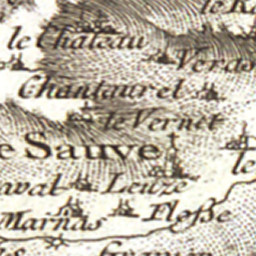 le Château
Veras
Chantaurel
de Vernet
e Sauve
le
aval Leuze
Marnas Flosse